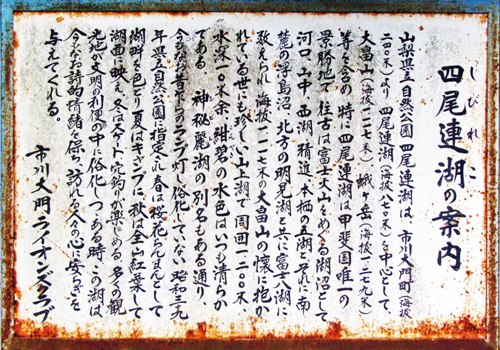 しびれこ
四尾連湖の案内
山梨県立自然公園 四尾連湖は、市川大門町(海抜
二四〇米)より 四尾連湖(海抜八七〇米)を中心として、
大畠山(海抜一一一七米) 蛾ヶ岳(海抜一二七九米)
等を含め 特に四尾連湖は 甲斐国唯一の
景勝地で 往古は富士火山をめぐる湖沼として
河口 山中 西湖 精進 本栖の五湖とそれに南
麓の浮島沼 北方の明見湖と共に富士八湖に
敎えられ 海抜一一一七米の大畠山の懐に抱か
れている世にも珍しい山上湖で 周囲一二〇〇米、
水深一〇米余 紺碧の水色はいつも清らか
である 神秘麗湖の別名もある通り
今もなお昔ながらのランプの灯で俗化していない 昭和三九
年県立自然公園に指定され 春は桜花らんまんとして
湖畔を色どり 夏はキャンプに 秋は全山紅葉して
湖面に映え 冬はスケート 穴釣りが楽しめる 多くの観
光地が文明の利便の中に俗化しつつある時 この湖は、
今なお詩的情緒を保ち、訪れる人々の心に安らぎを
与えてくれる。
市川大門ライオンズクラブ